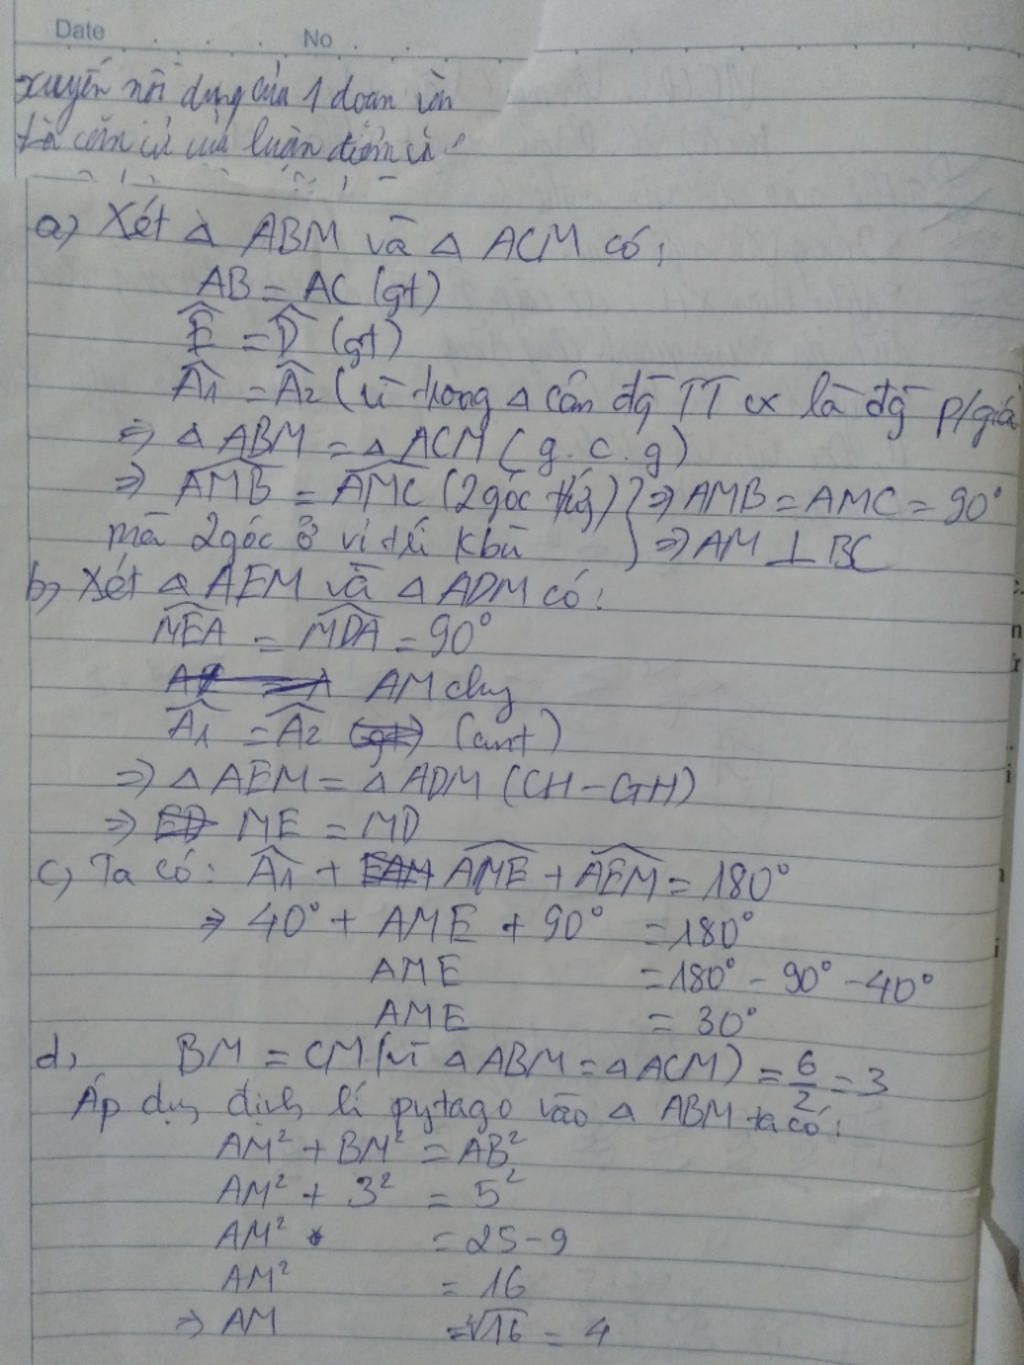 Date No
xuyến nội dung của 1 đoạn
là căn cứ của luận điểm
a) Xét Δ ABM và Δ ACM có:
AB = AC (gt)
Ê = D̂ (gt)
Â1 = Â2 (vì trong Δ cân đg TT cx là đg p/giác
⇒ Δ ABM = Δ ACM (g.c.g)
⇒ AMB = AMC (2góc tứ) } ⇒ AMB = AMC = 90°
mà 2góc ở vị trí kbù } ⇒ AM ⊥ BC
b) Xét Δ AEM và Δ ADM có:
MEA = MDA = 90°
AM chg
Â1 = Â2 (cmt)
⇒ Δ AEM = Δ ADM (CH - GH)
⇒ ME = MD
c) Ta có: Â1 + AME + AEM = 180°
⇒ 40° + AME + 90° = 180°
AME = 180° - 90° - 40°
AME = 30°
d, BM = CM (vì Δ ABM = Δ ACM) = 6/2 = 3
Áp dụg định lí pytago vào Δ ABM ta có:
AM² + BM² = AB²
AM² + 3² = 5²
AM² = 25 - 9
AM² = 16
⇒ AM = √16 = 4